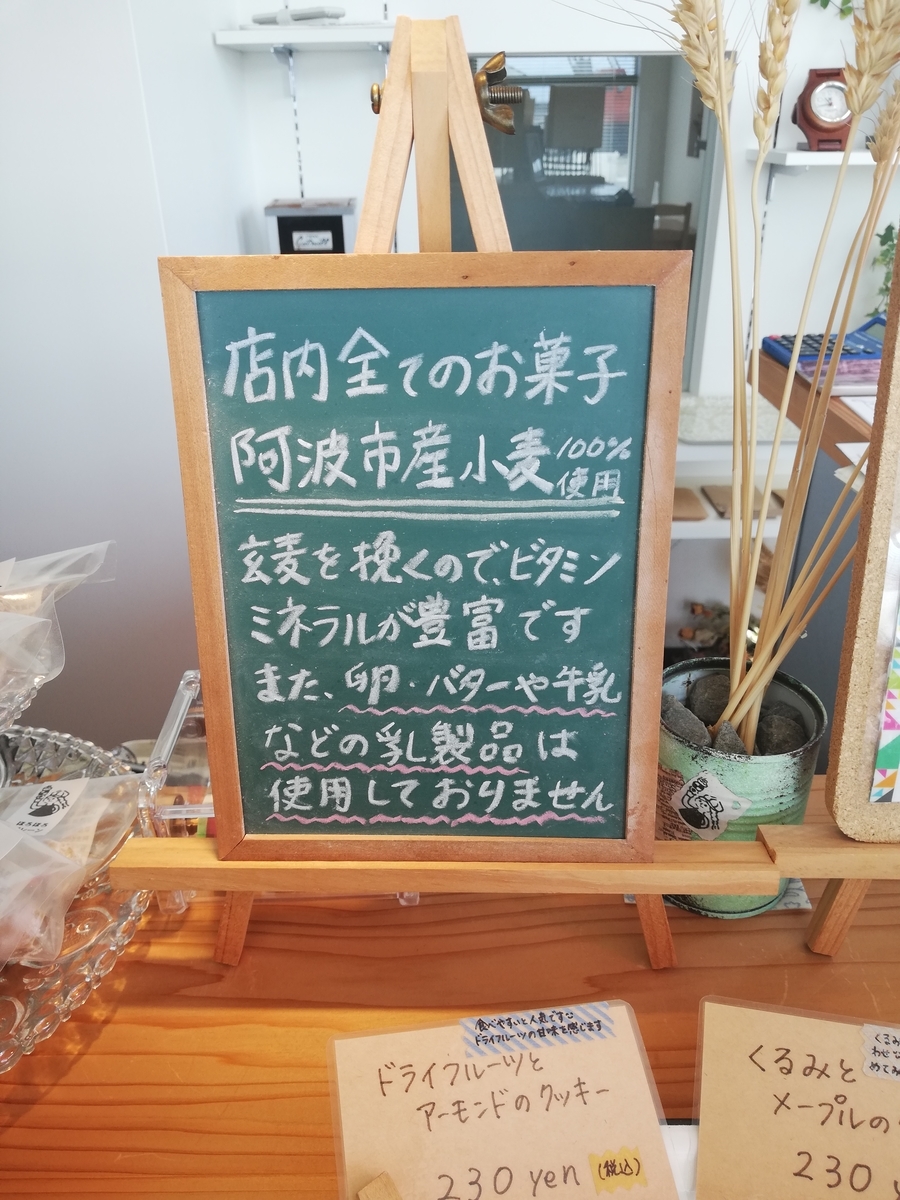 店内全てのお菓子
阿波市産小麦100%使用
玄麦を挽くので、ビタミン
ミネラルが豊富です
また、卵・バターや牛乳
などの乳製品は
使用しておりません
食べやすいと人気です
ドライフルーツの甘味を感じます
ドライフルーツと
アーモンドのクッキー
230yen (税込)
くるみ
わせ
めてみ
くるみと
メープルの
230